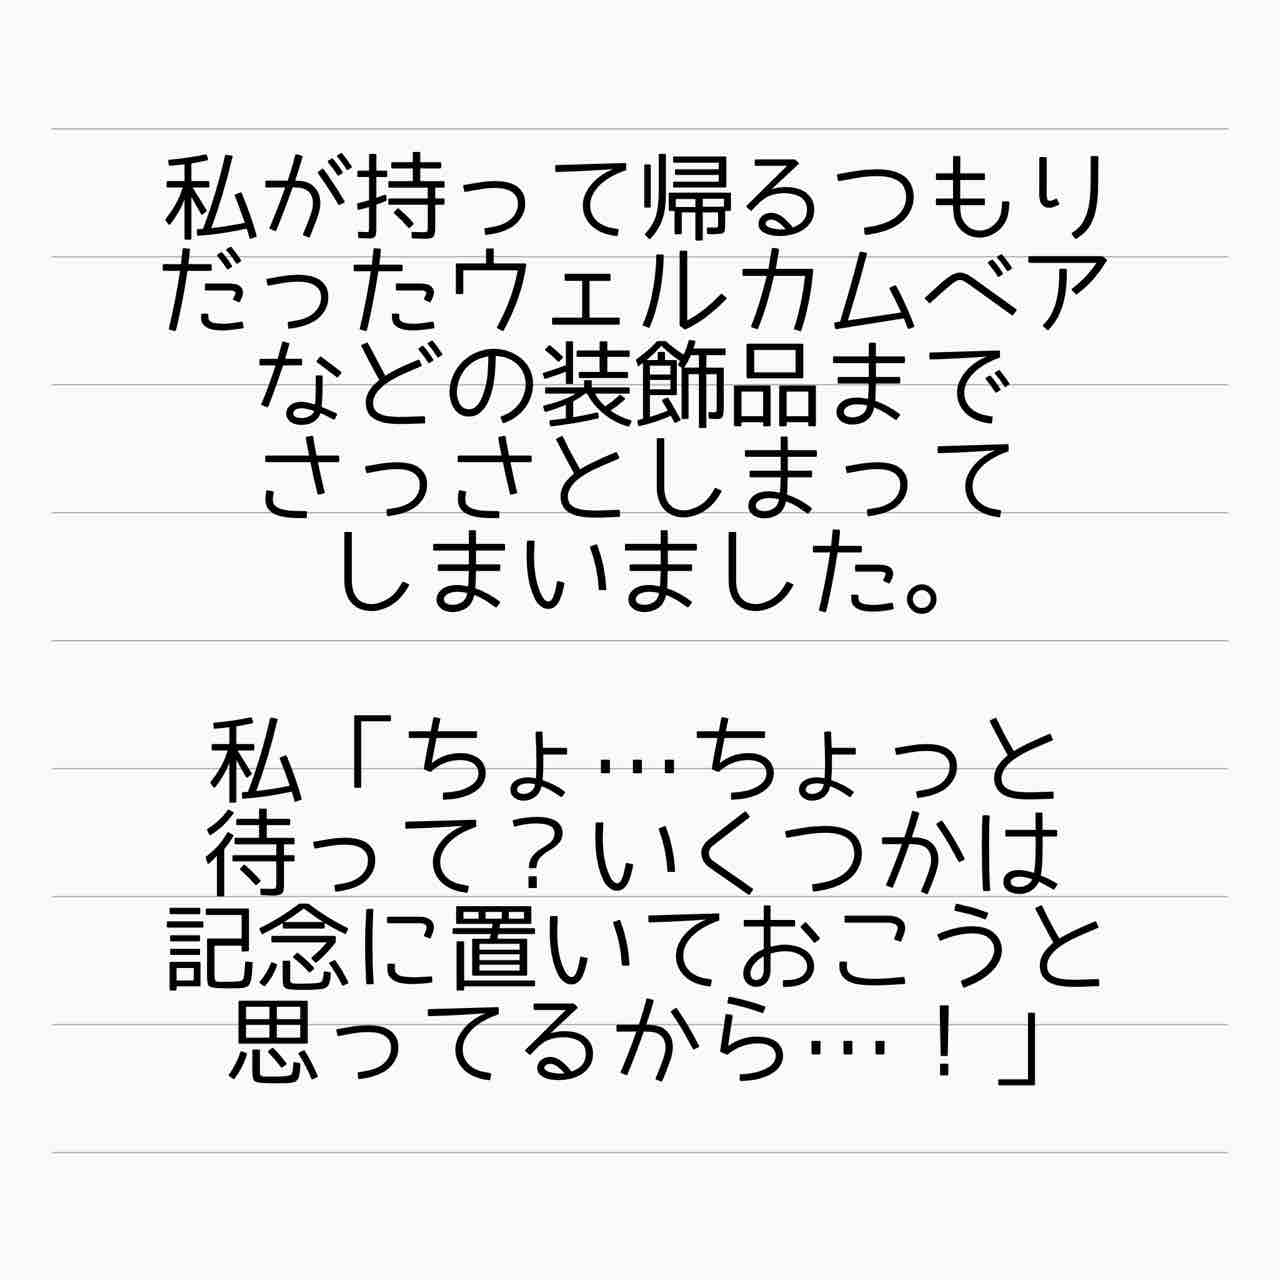 私が持って帰るつもり
だったウェルカムベア
などの装飾品まで
さっさとしまって
しまいました。
私「ちょ…ちょっと
待って？いくつかは
記念に置いておこうと
思ってるから…！」